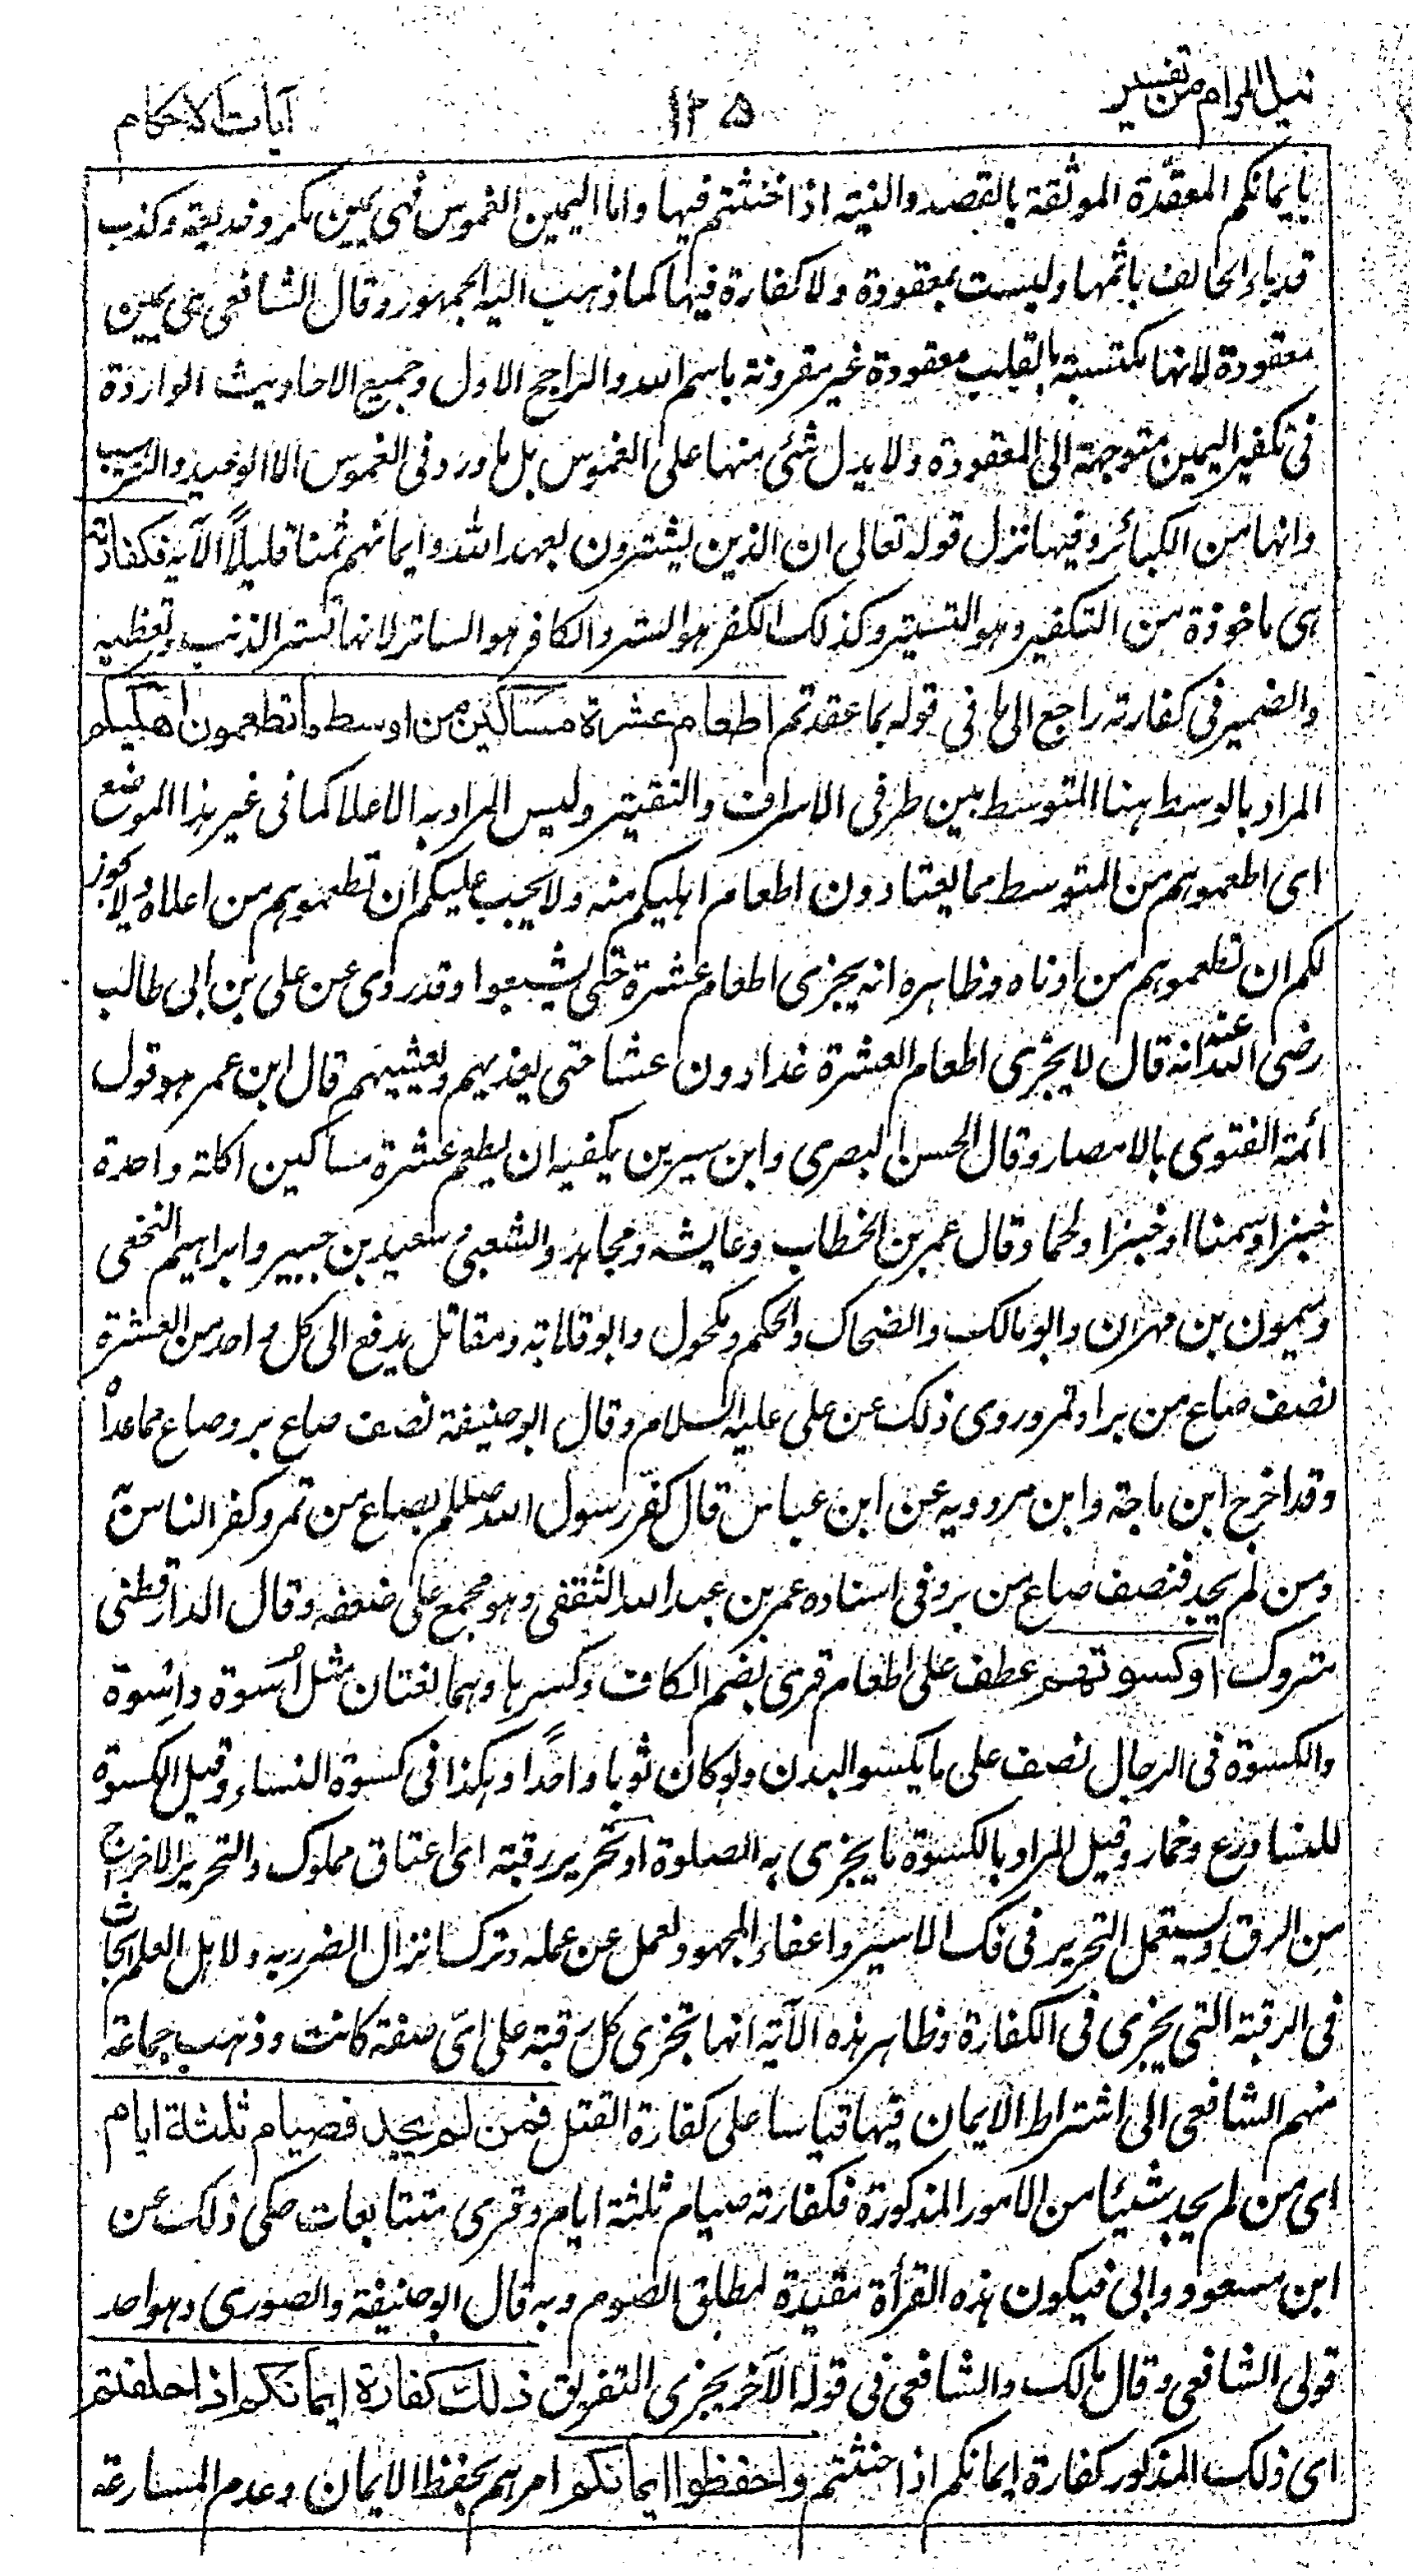 نيل المرام من تفسير
١٢٥
آيات الاحكام
بايمانكم المعقّدة الموثقة بالقصد والنية اذا حنثتم فيها واما اليمين الغموس فهى يمين مكر وخديعة وكذب
قد باء الحالف باثمها وليست بمعقودة ولا كفارة فيها كما ذهب اليه الجمهور وقال الشافعى هى يمين
معقودة لانها مكتسبة بالقلب معقودة غير مقرونة باسم الله والراجح الاول وجميع الاحاديث الواردة
فى تكفير اليمين متوجهة الى المعقودة ولا يدل شئ منها على الغموس بل ما ورد فى الغموس الا الوعيد والترهيب
وانها من الكبائر وفيها نزل قوله تعالى ان الذين يشترون بعهد الله وايمانهم ثمنا قليلاً الآية فكفارته
هى ماخوذة من التكفير وهو التستير وكذلك الكفر هو الستر والكافر هو الساتر لانها تستر الذنب وتغطيه
والضمير فى كفارته راجع الى ما فى قوله بما عقدتم اطعام عشرة مساكين من اوسط ما تطعمون اهليكم
المراد بالوسط هنا المتوسط بين طرفى الاسراف والتقتير وليس المراد به الاعلا كما فى غير هذا الموضع
اى اطعموهم من المتوسط مما تعتادون اطعام اهليكم منه ولا يجب عليكم ان تطعموهم من اعلاه ولا يجوز
لكم ان تطعموهم من ادناه وظاهره انه يجزى اطعام عشرة حتى يشبعوا وقد روى عن على بن ابى طالب
رضى الله عنه انه قال لا يجزى اطعام العشرة غداء دون عشا حتى يغديهم ويعشيهم قال ابن عمر هو قول
ائمة الفتوى بالامصار وقال الحسن البصرى وابن سيرين يكفيه ان يطعم عشرة مساكين اكلة واحدة
خبزا وسمنا او خبزا ولحما وقال عمر بن الخطاب وعايشه ومجاهد والشعبى وسعيد بن جبير وابراهيم النخعى
وميمون بن مهران وابو مالك والضحاك والحكم ومكحول وابو قلابة ومقاتل يدفع الى كل واحد من العشرة
نصف صاع من بر او تمر وروى ذلك عن على عليه السلام وقال ابو حنيفة نصف صاع بر وصاع مما عداه
وقد اخرج ابن ماجة وابن مردويه عن ابن عباس قال كفّر رسول الله صلعم بصاع من تمر وكفر الناس به
ومن لم يجد فنصف صاع من بر وفى اسناده عمر بن عبد الله الثقفى وهو مجمع على ضعفه وقال الدارقطنى
متروك او كسوتهم عطف على اطعام قرى بضم الكاف وكسرها وهما لغتان مثل اُسوة واِسوة
والكسوة فى الرجال تصدف على ما يكسو البدن ولو كان ثوبا واحدًا وهكذا فى كسوة النساء وقيل الكسوة
للنسا درع وخمار وقيل المراد بالكسوة ما يجزى به الصلوة او تحرير رقبة اى اعتاق مملوك والتحرير الاخراج
من الرق ويستعمل التحرير فى فك الاسير واعفاء المجهود بعمل عن عمله وترك انزال الضرر به ولاهل العلم ابحاث
فى الرقبة التى يجزى فى الكفارة وظاهر هذه الآية انها تجزى كل رقبة على اىّ صفة كانت وذهب جماعة
منهم الشافعى الى اشتراط الايمان فيها قياسا على كفارة القتل فمن لم يجد فصيام ثلثة ايام
اى من لم يجد شيئا من الامور المذكورة فكفارته صيام ثلثة ايام وقرى متتابعات حكى ذلك عن
ابن مسعود وابى فيكون هذه القرأة مقيدة لمطلق الصوم وبه قال ابو حنيفة والصورى وهو احد
قولى الشافعى وقال مالك والشافعى فى قوله الآخر يجزى التفريق ذلك كفارة ايمانكم اذا حلفتم
اى ذلك المذكور كفارة ايمانكم اذا حنثتم واحفظوا ايمانكم امرهم بحفظ الايمان وعدم المسارعة